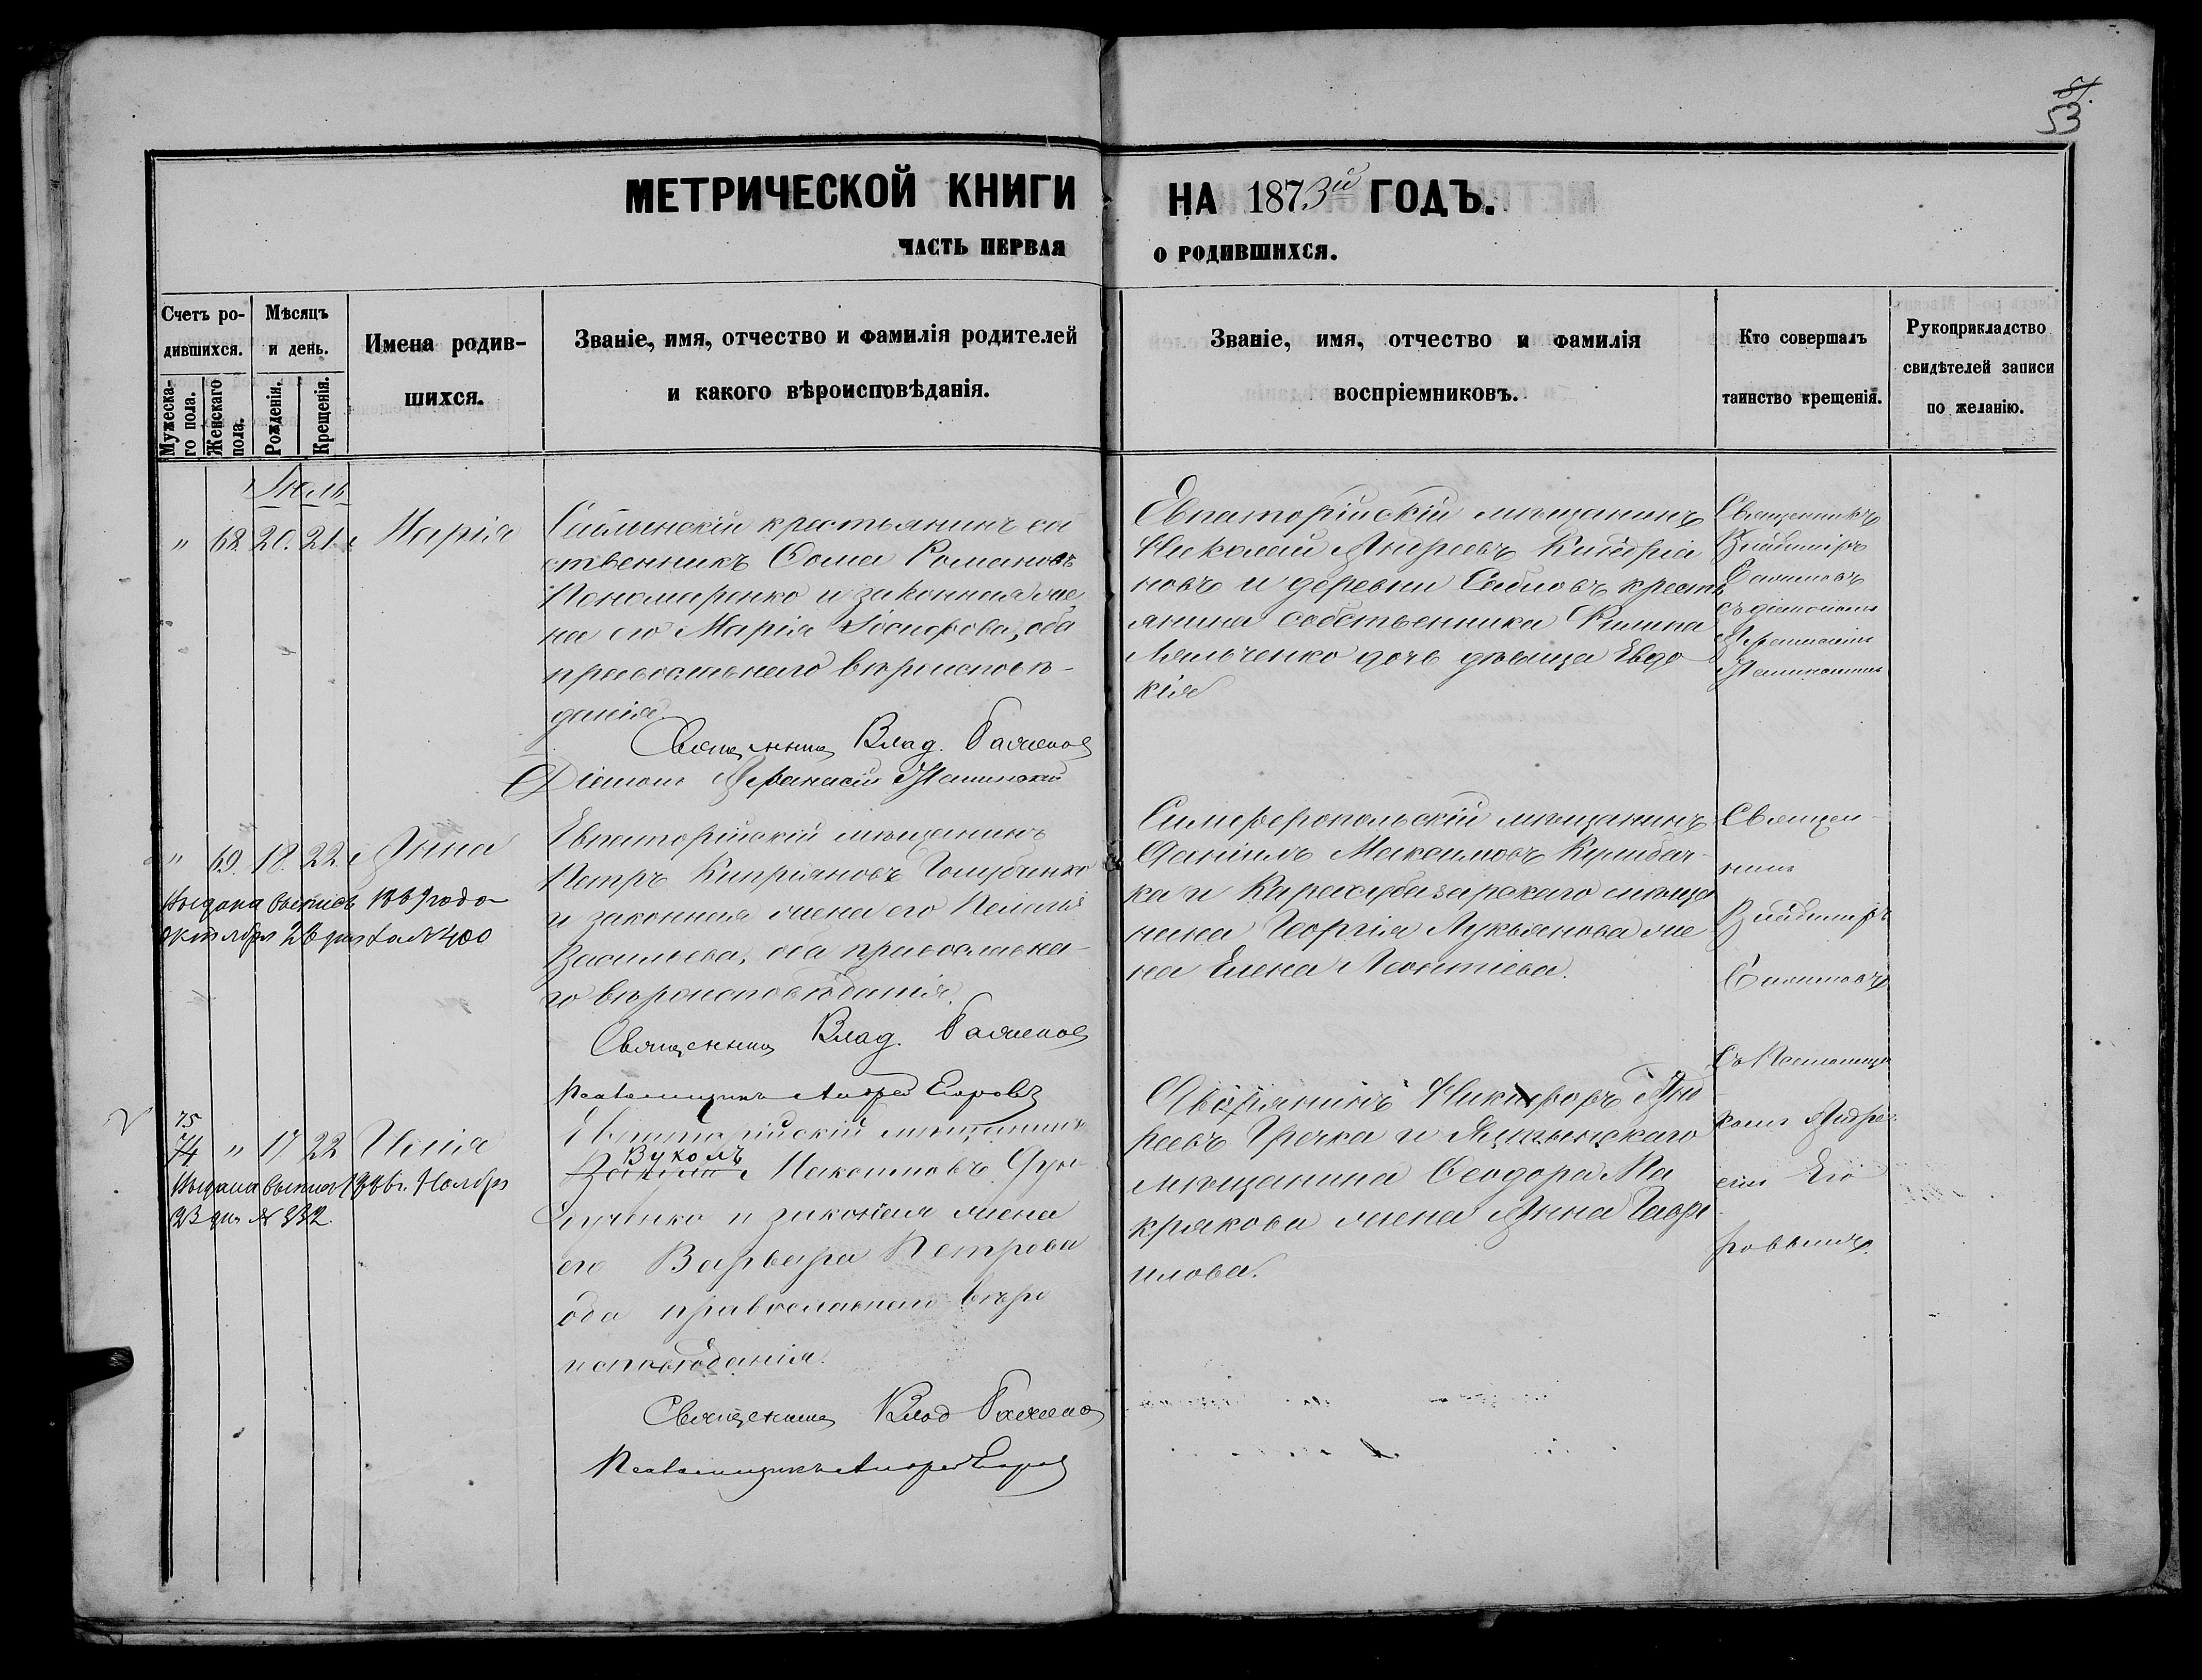 51.
53
МЕТРИЧЕСКОЙ КНИГИ НА 1873й ГОДЪ.
ЧАСТЬ ПЕРВАЯ О РОДИВШИХСЯ.
Счетъ ро-
дившихся.
Мужеска-
го пола.
Женскаго
пола.
Мѣсяцъ
и день.
Рожденія.
Крещенія.
Имена родив-
шихся.
Званіе, имя, отчество и фамилія родителей
и какого вѣроисповѣданія.
Званіе, имя, отчество и фамилія
воспріемниковъ.
Кто совершалъ
таинство крещенія.
Рукоприкладство
свидѣтелей записи
по желанію.
Іюль
" 68. 20. 21. Марія
крестьянинъ со
ственникъ Ѳома Романовъ
Пономаренко и законная же
на его Марія Іосифова, оба
православнаго вѣроисповѣ-
данія
Священникъ Влад. Баженов
Діаконъ Афанасій
Евпаторійскій мѣщанинъ
Николай Андреевъ Кипрія
новъ и деревни крестья
янина собственника Филипа
Ляльченко дочь дѣвица Евдо
кія
Священникъ
Владиміръ
Баженовъ
съ діакономъ
Афанасіемъ
" 69. 18. 22. Анна
Выдана выпись 1889 года
октября 28 дня за № 400
Евпаторійскій мѣщанинъ
Петръ Кипріяновъ Голубченко
и законная жена его Пелагія
Васильева, оба православна-
го вѣроисповѣданія.
Священникъ Влад. Баженов
Псаломщикъ Андрей Егоровъ
Симферопольскій мѣщанинъ
Даніилъ Максимовъ Кулибач-
ка и Карасубазарскаго мѣща
нина Георгія Лукьянова же
на Елена Леонтіева.
Священ-
никъ
Владиміръ
Баженовъ
съ Псаломщи
комъ Андре-
емъ Его
ровымъ.
75
74 " 17 22 Илія
Выдана выпись 1886 г. Ноября
23 дня № 332.
Евпаторійскій мѣщанинъ
Вуколъ
Максимовъ
и законная жена
его Варвара Петрова
оба православнаго вѣро
исповѣданія.
Священникъ Влад Баженов
Псаломщикъ Андрей Егоров
Дворянинъ Никифоръ Анд
реевъ Гречка и Ялтинскаго
мѣщанина Ѳеодора Ма
крякова жена Анна Гаври
илова.